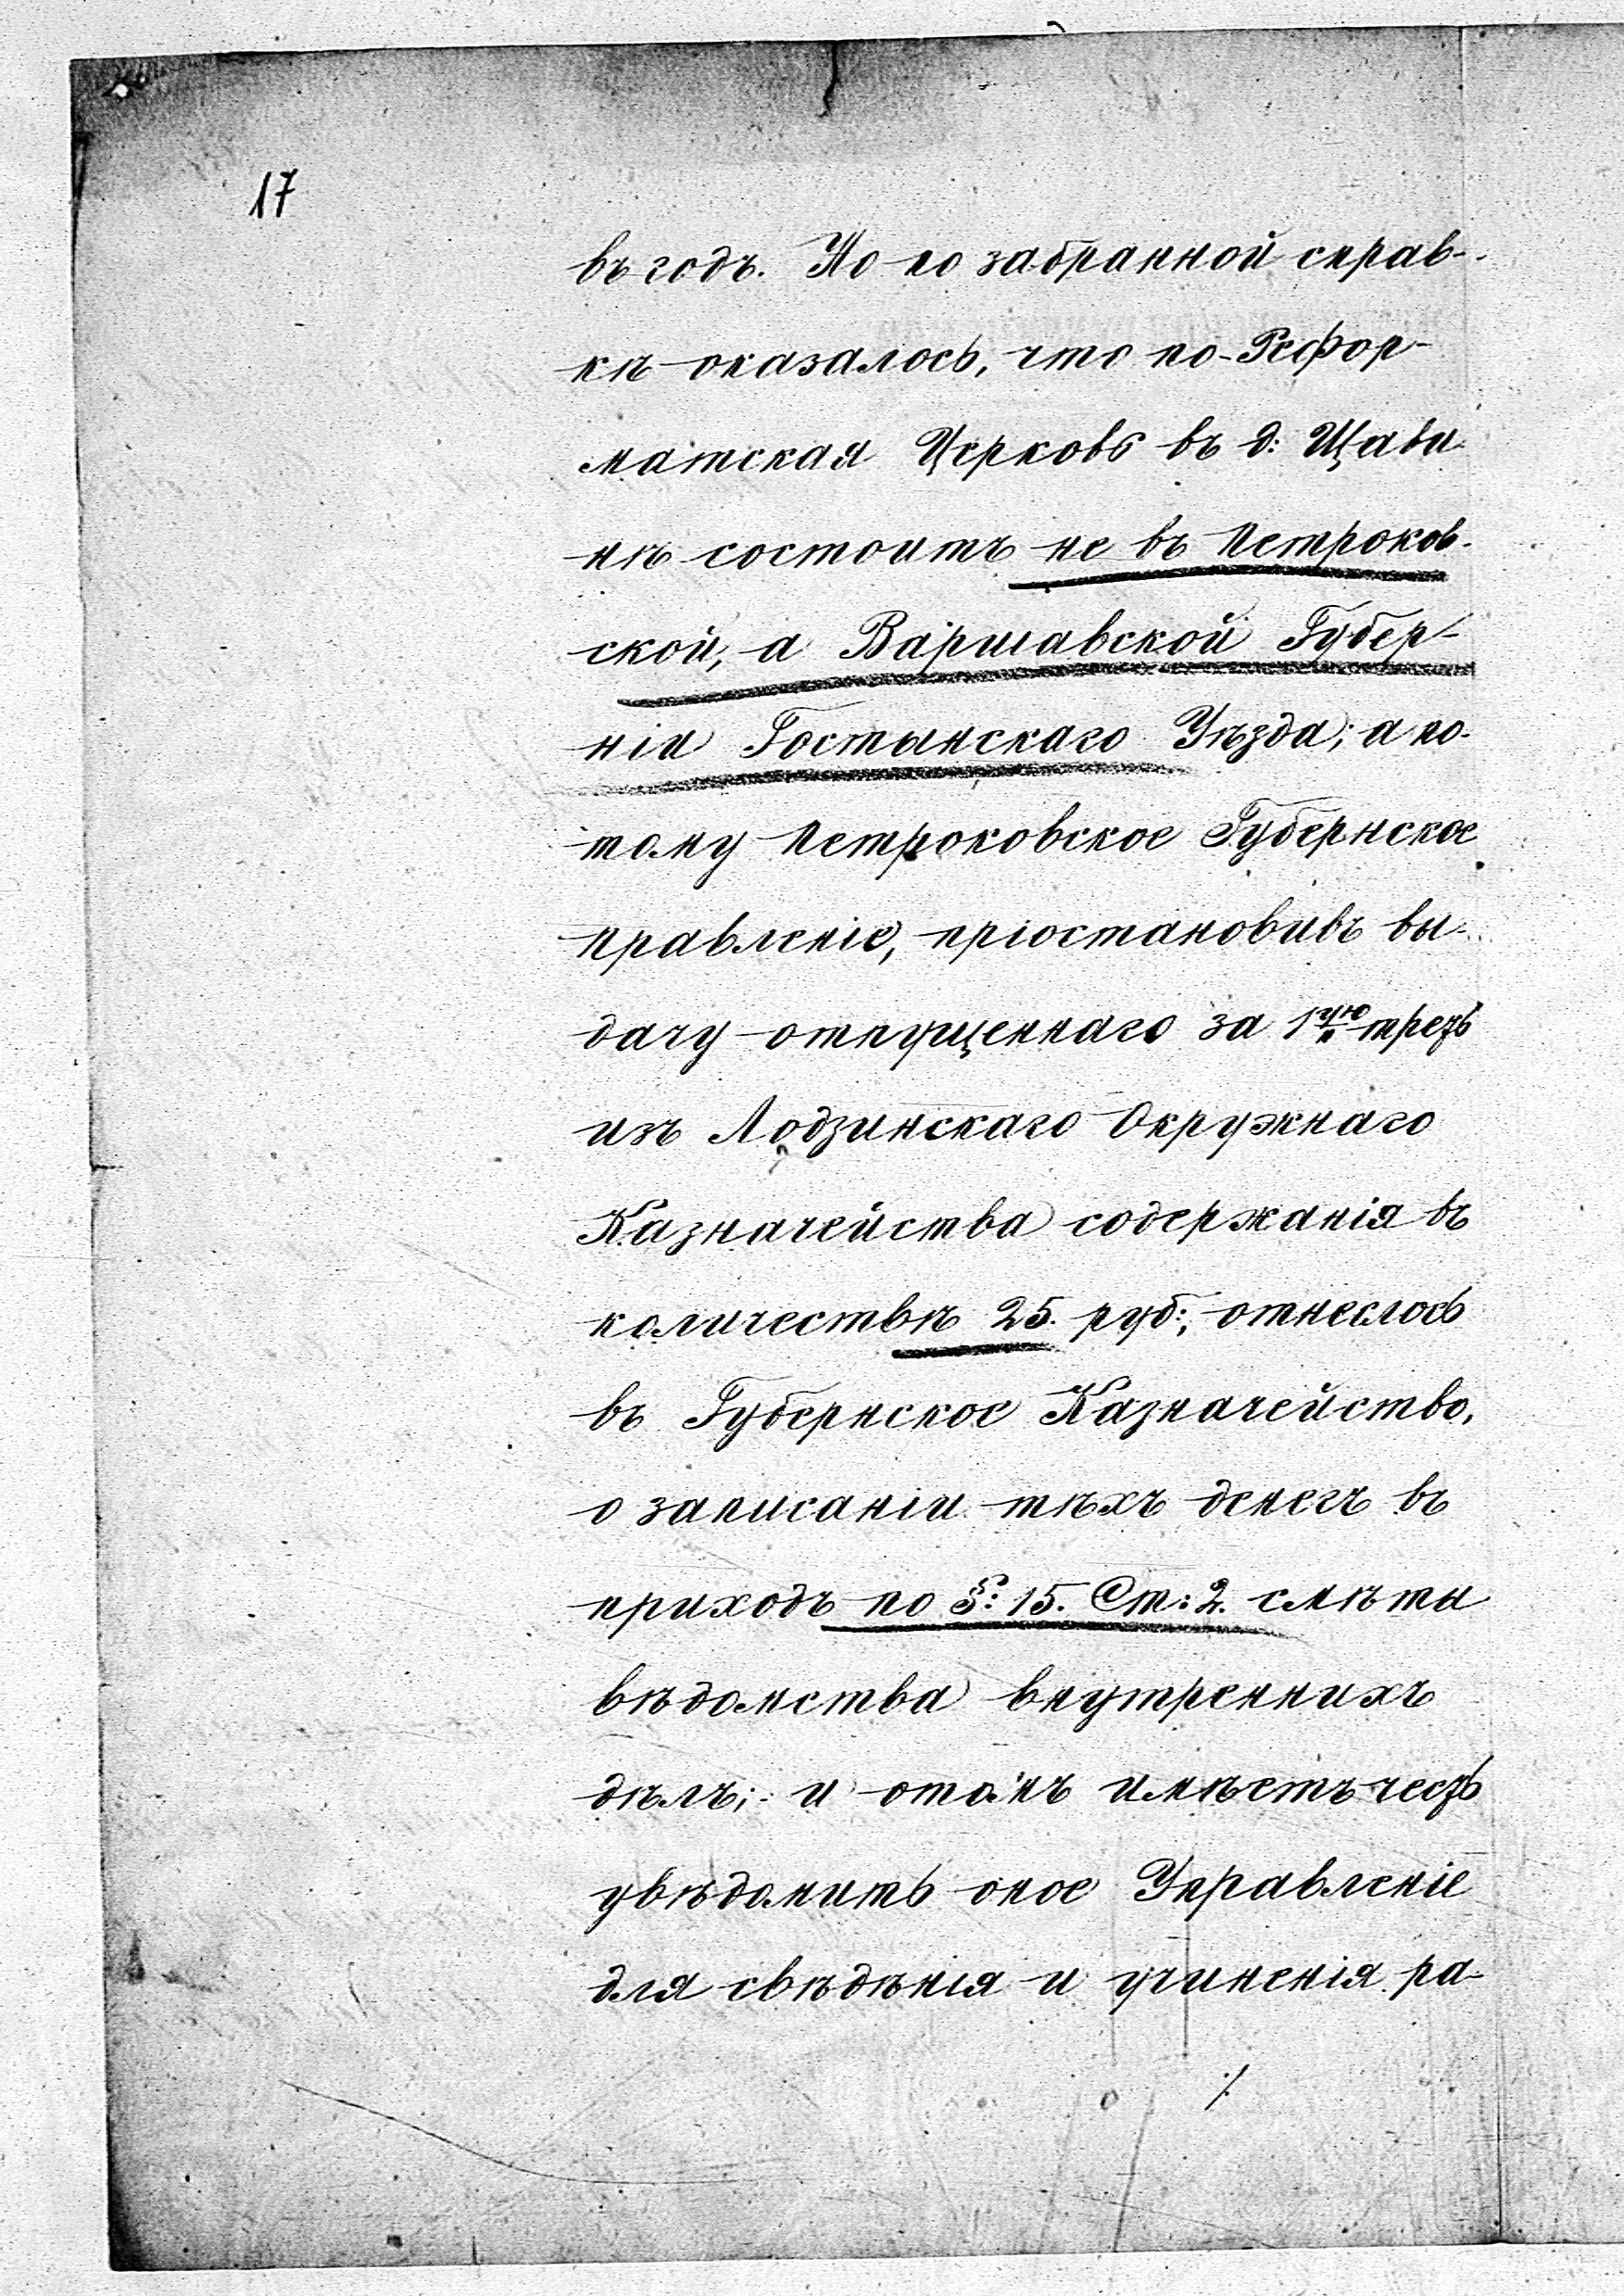 17
въ годъ. Но по забранной справ-
кѣ оказалось, что по-Рефор-
матская Церковь въ д: Щави-
нѣ состоитъ не въ Петроков-
ской, а Варшавской Губер-
ніи Гостынскаго Уѣзда; а по-
тому Петроковское Губернское
Правленіе, пріостановивъ вы-
дачу отпущеннаго за 1ую треть
изъ Лодзинскаго Окружнаго
Казначейства содержанія въ
количествѣ 25. руб:, отнеслось
въ Губернское Казначейство,
о записаніи тѣхъ денегъ въ
приходъ по §: 15. Ст: 2. смѣты
вѣдомства внутреннихъ
дѣлъ; и о томъ имѣетъ честь
увѣдомить оное Управленіе
для свѣдѣнія и учиненія ра-
./.